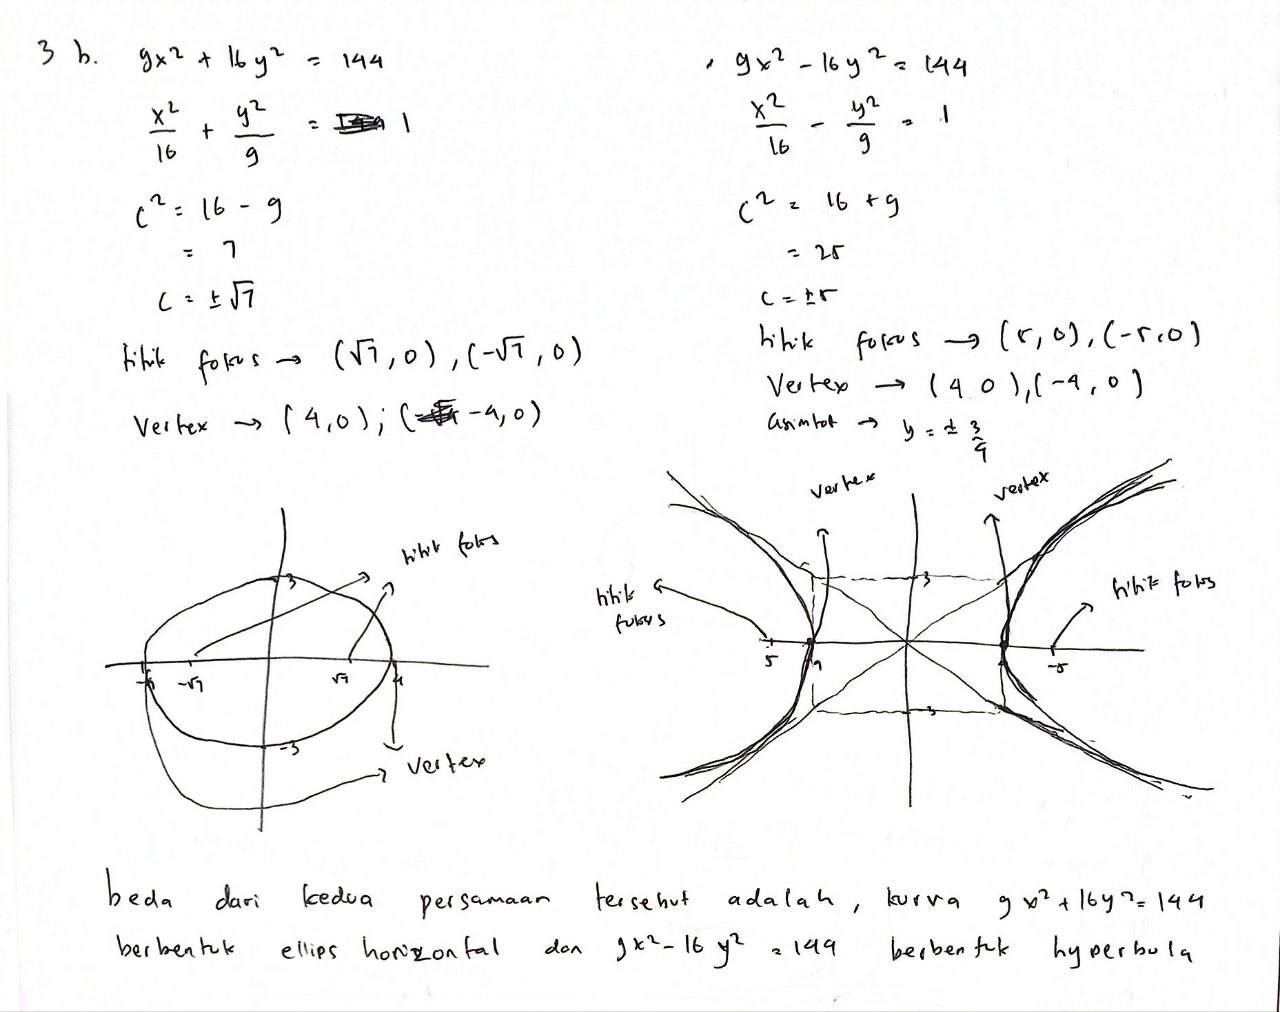 3 b. 9x² + 16y² = 144
x²/16 + y²/9 = 1
c² = 16 - 9
= 7
c = ±√7
titik fokus → (√7, 0), (-√7, 0)
Vertex → (4,0); (-4,0)
titik fokus
3
-4
-√7
√7
4
-3
vertex
9x² - 16y² = 144
x²/16 - y²/9 = 1
c² = 16 + 9
= 25
c = ±5
titik fokus → (5,0), (-5,0)
Vertex → (4 0), (-4, 0)
asimtot → y = ± 3/4
vertex
vertex
titik fokus
titik fokus
3
5
4
-5
3
beda dari kedua persamaan tersebut adalah, kurva 9x² + 16y² = 144
berbentuk ellips horizontal dan 9x² - 16y² = 144 berbentuk hyperbola